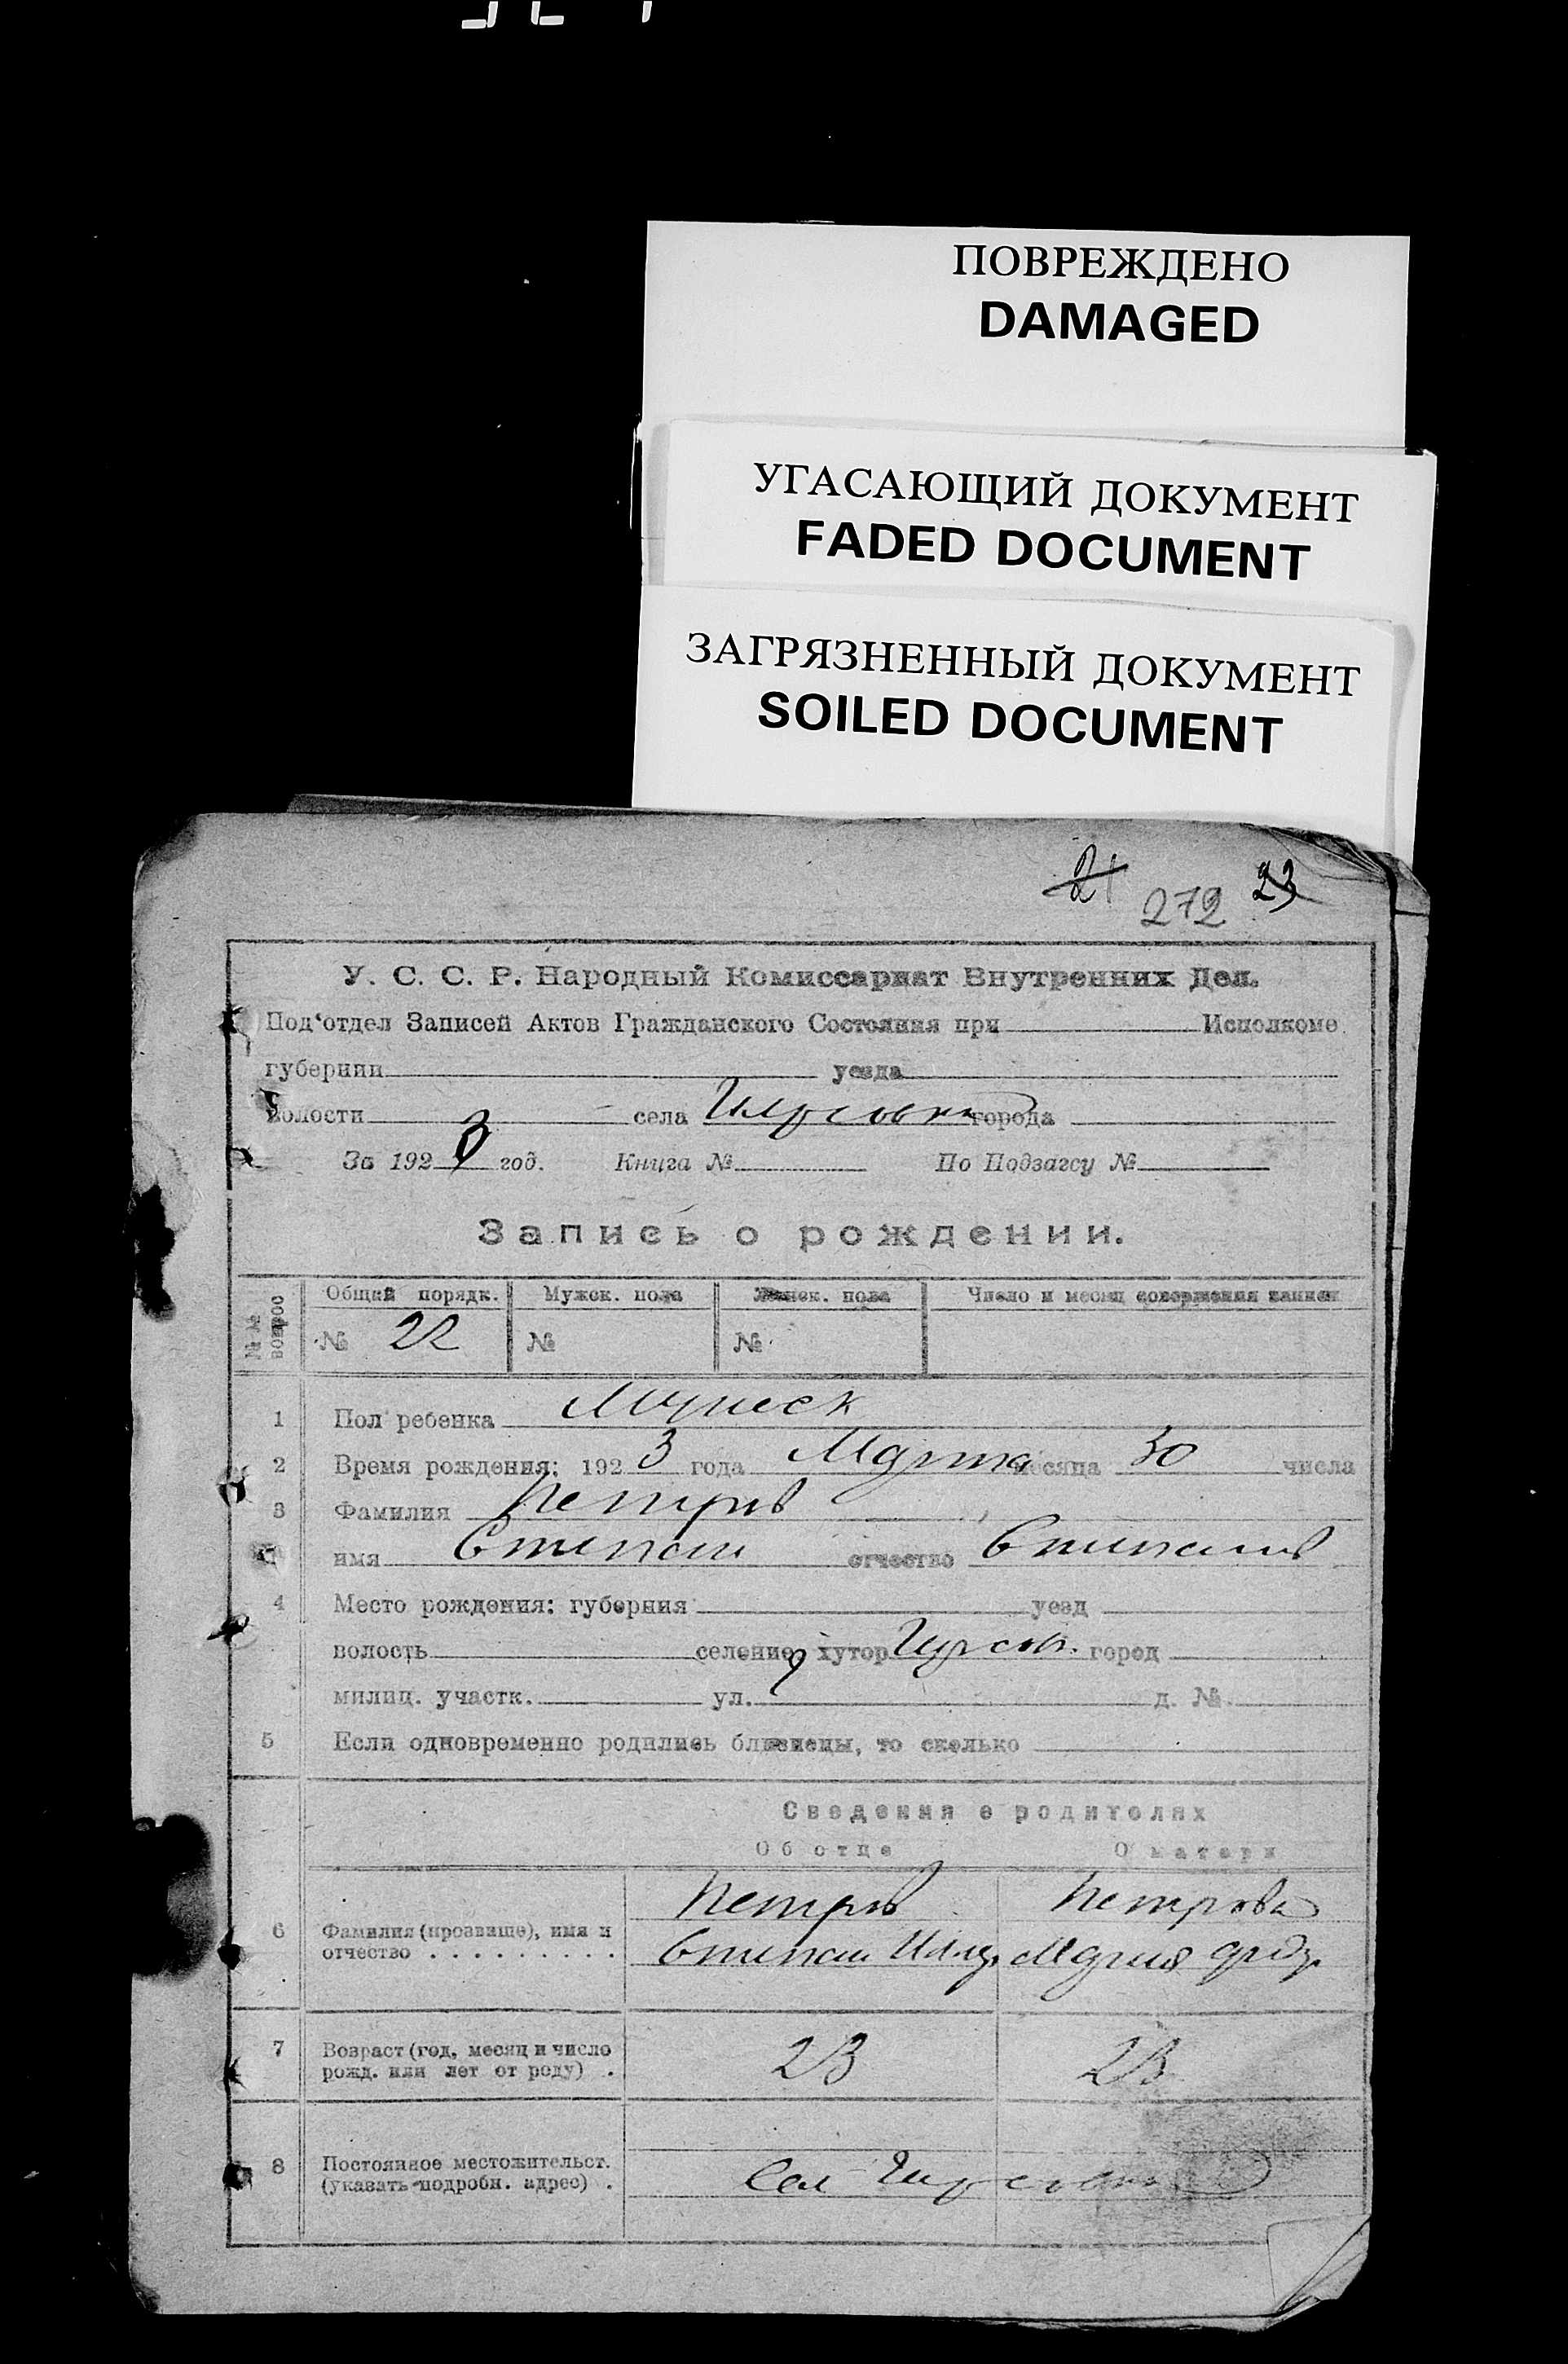 ПОВРЕЖДЕНО
DAMAGED
УГАСАЮЩИЙ ДОКУМЕНТ
FADED DOCUMENT
ЗАГРЯЗНЕННЫЙ ДОКУМЕНТ
SOILED DOCUMENT
21 272 23
У. С. С. Р. Народный Комиссариат Внутренних Дел.
Под‘отдел Записей Актов Гражданского Состояния при Исполкоме
губернии уезда
волости села города
За 1923 год. Книга № По Подзагсу №
Запись о рождении.
№№ вопрос
Общий порядк. Мужск. пола Женск. пола Число и месяц совершения записи
№ 22 № №
1 Пол ребенка Мужеск
2 Время рождения: 1923 года Марта месяца 30 числа
3 Фамилия Петров
имя Степан отчество Степанов
4 Место рождения: губерния уезд
волость селение, хутор город
милиц. участк. ул. д. №
5 Если одновременно родились близнецы, то сколько
Сведения о родителях
Об отце О матери
Петров Петрова
6 Фамилия (прозвище), имя и
отчество . . . . . . . . . Степан Мария
7 Возраст (год, месяц и число
рожд. или лет от роду) . 23 23
8 Постоянное местожительст.
(указать подробн. адрес) . Сел